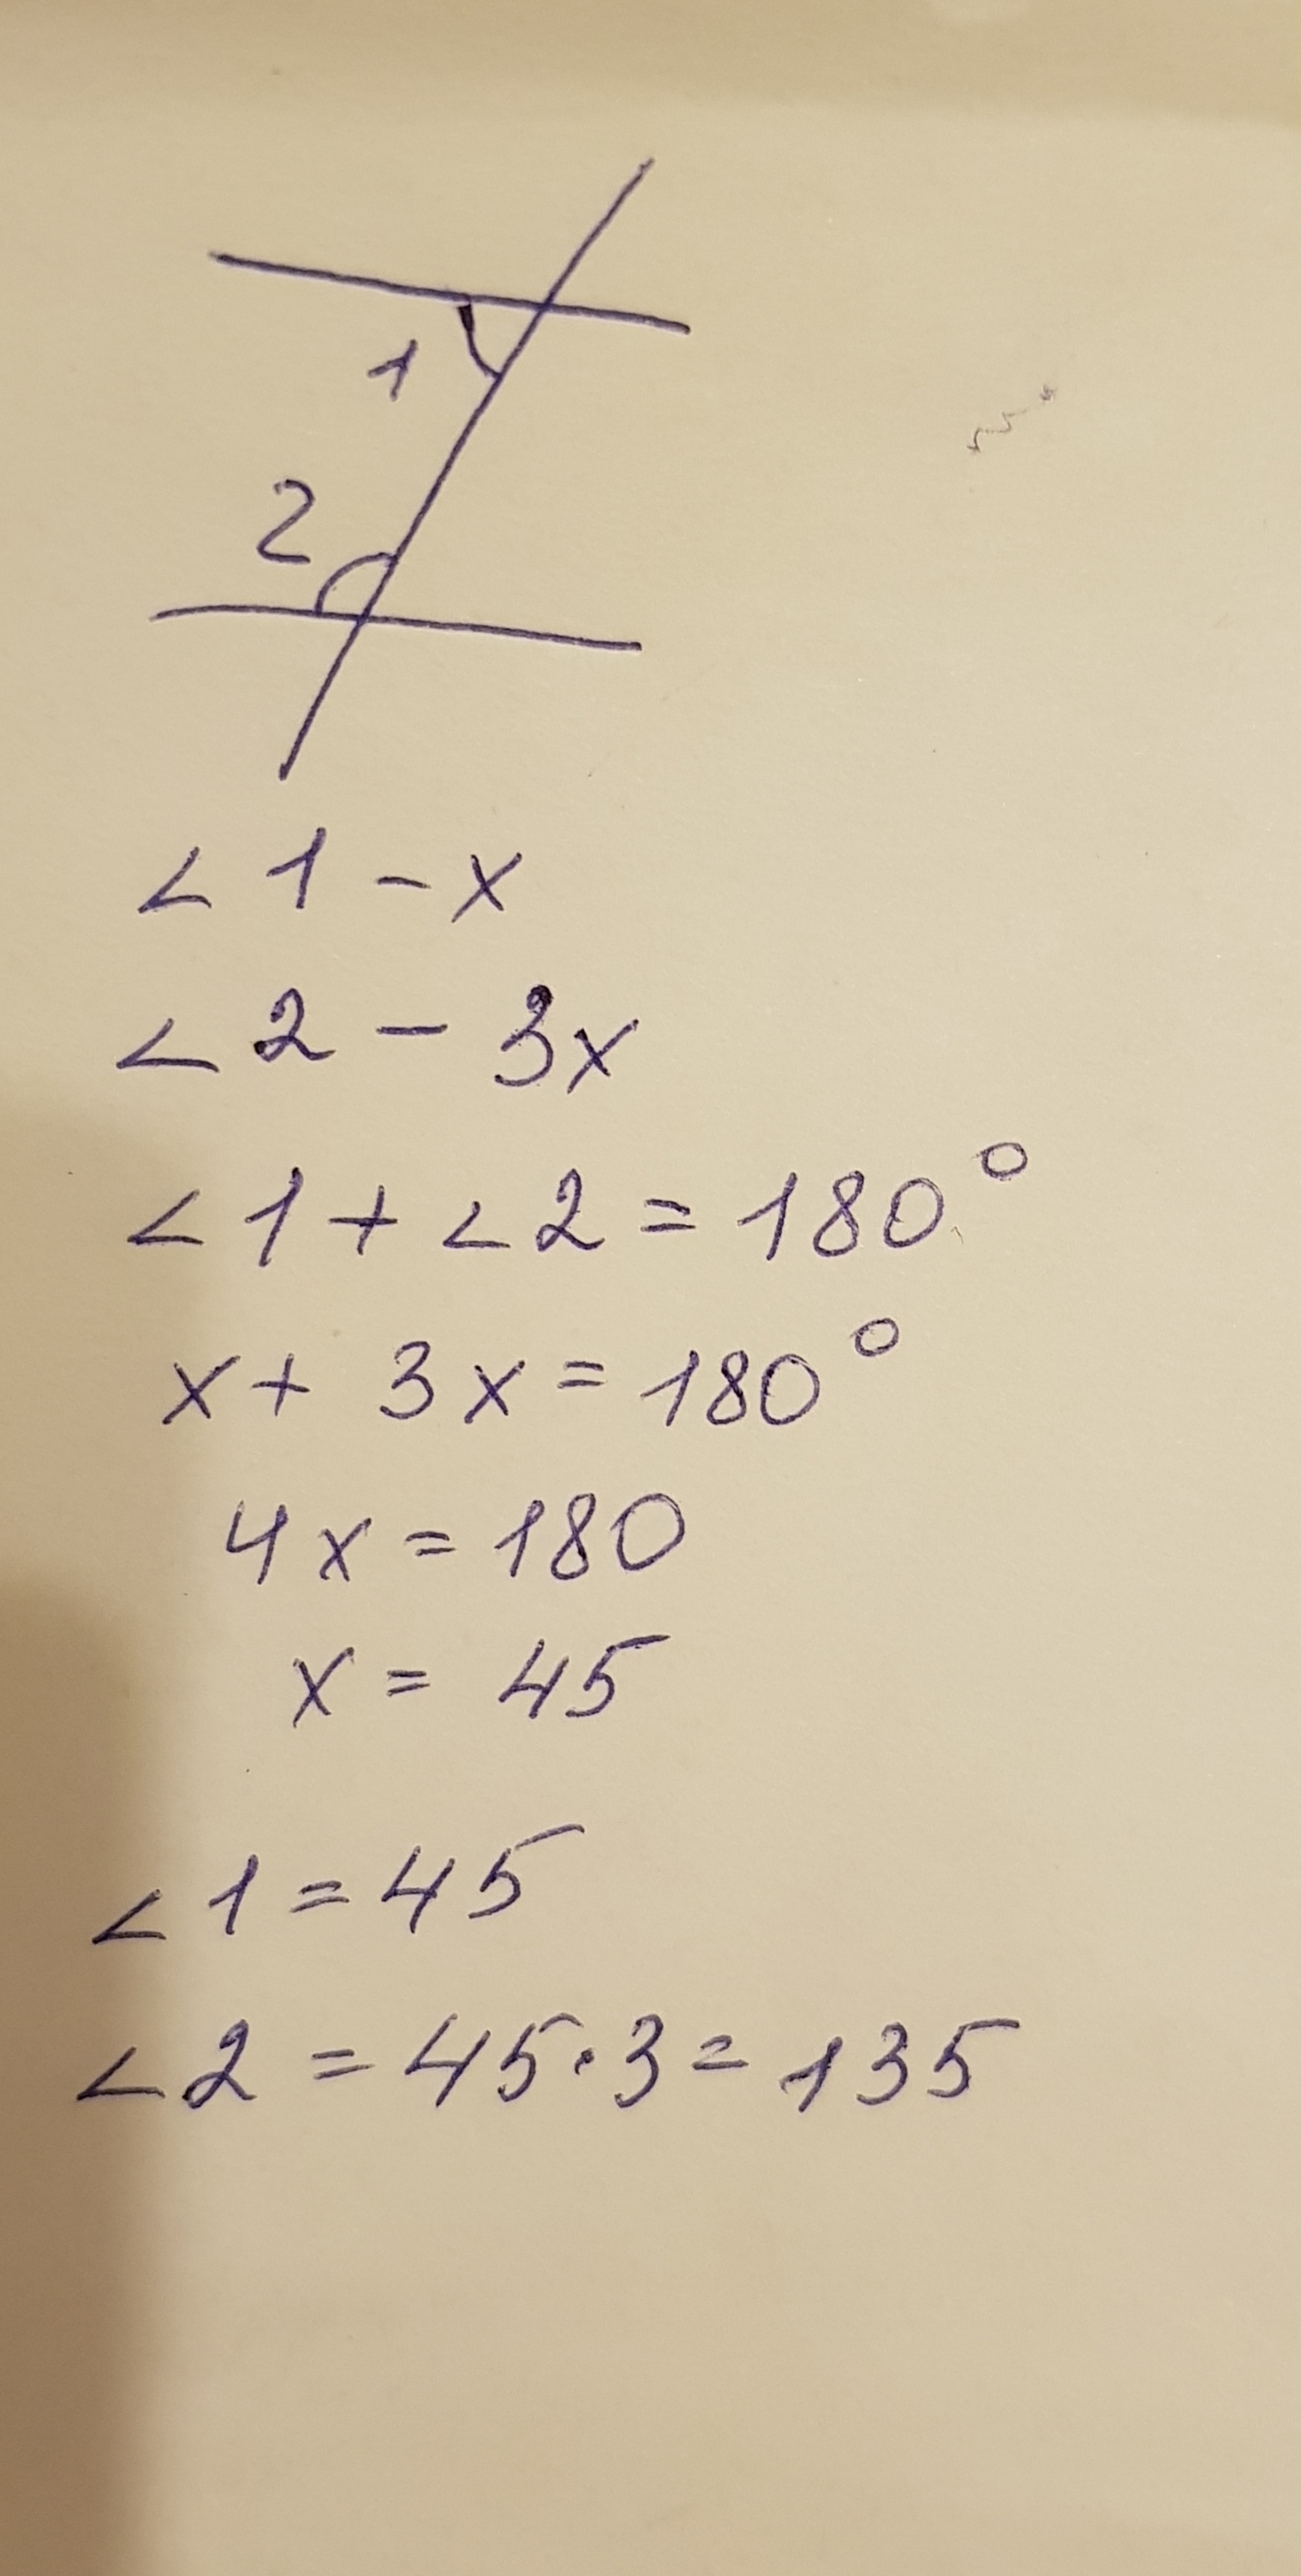 1
2
∠1 - x
∠2 - 3x
∠1 + ∠2 = 180°
x + 3x = 180°
4x = 180
x = 45
∠1 = 45
∠2 = 45·3 = 135